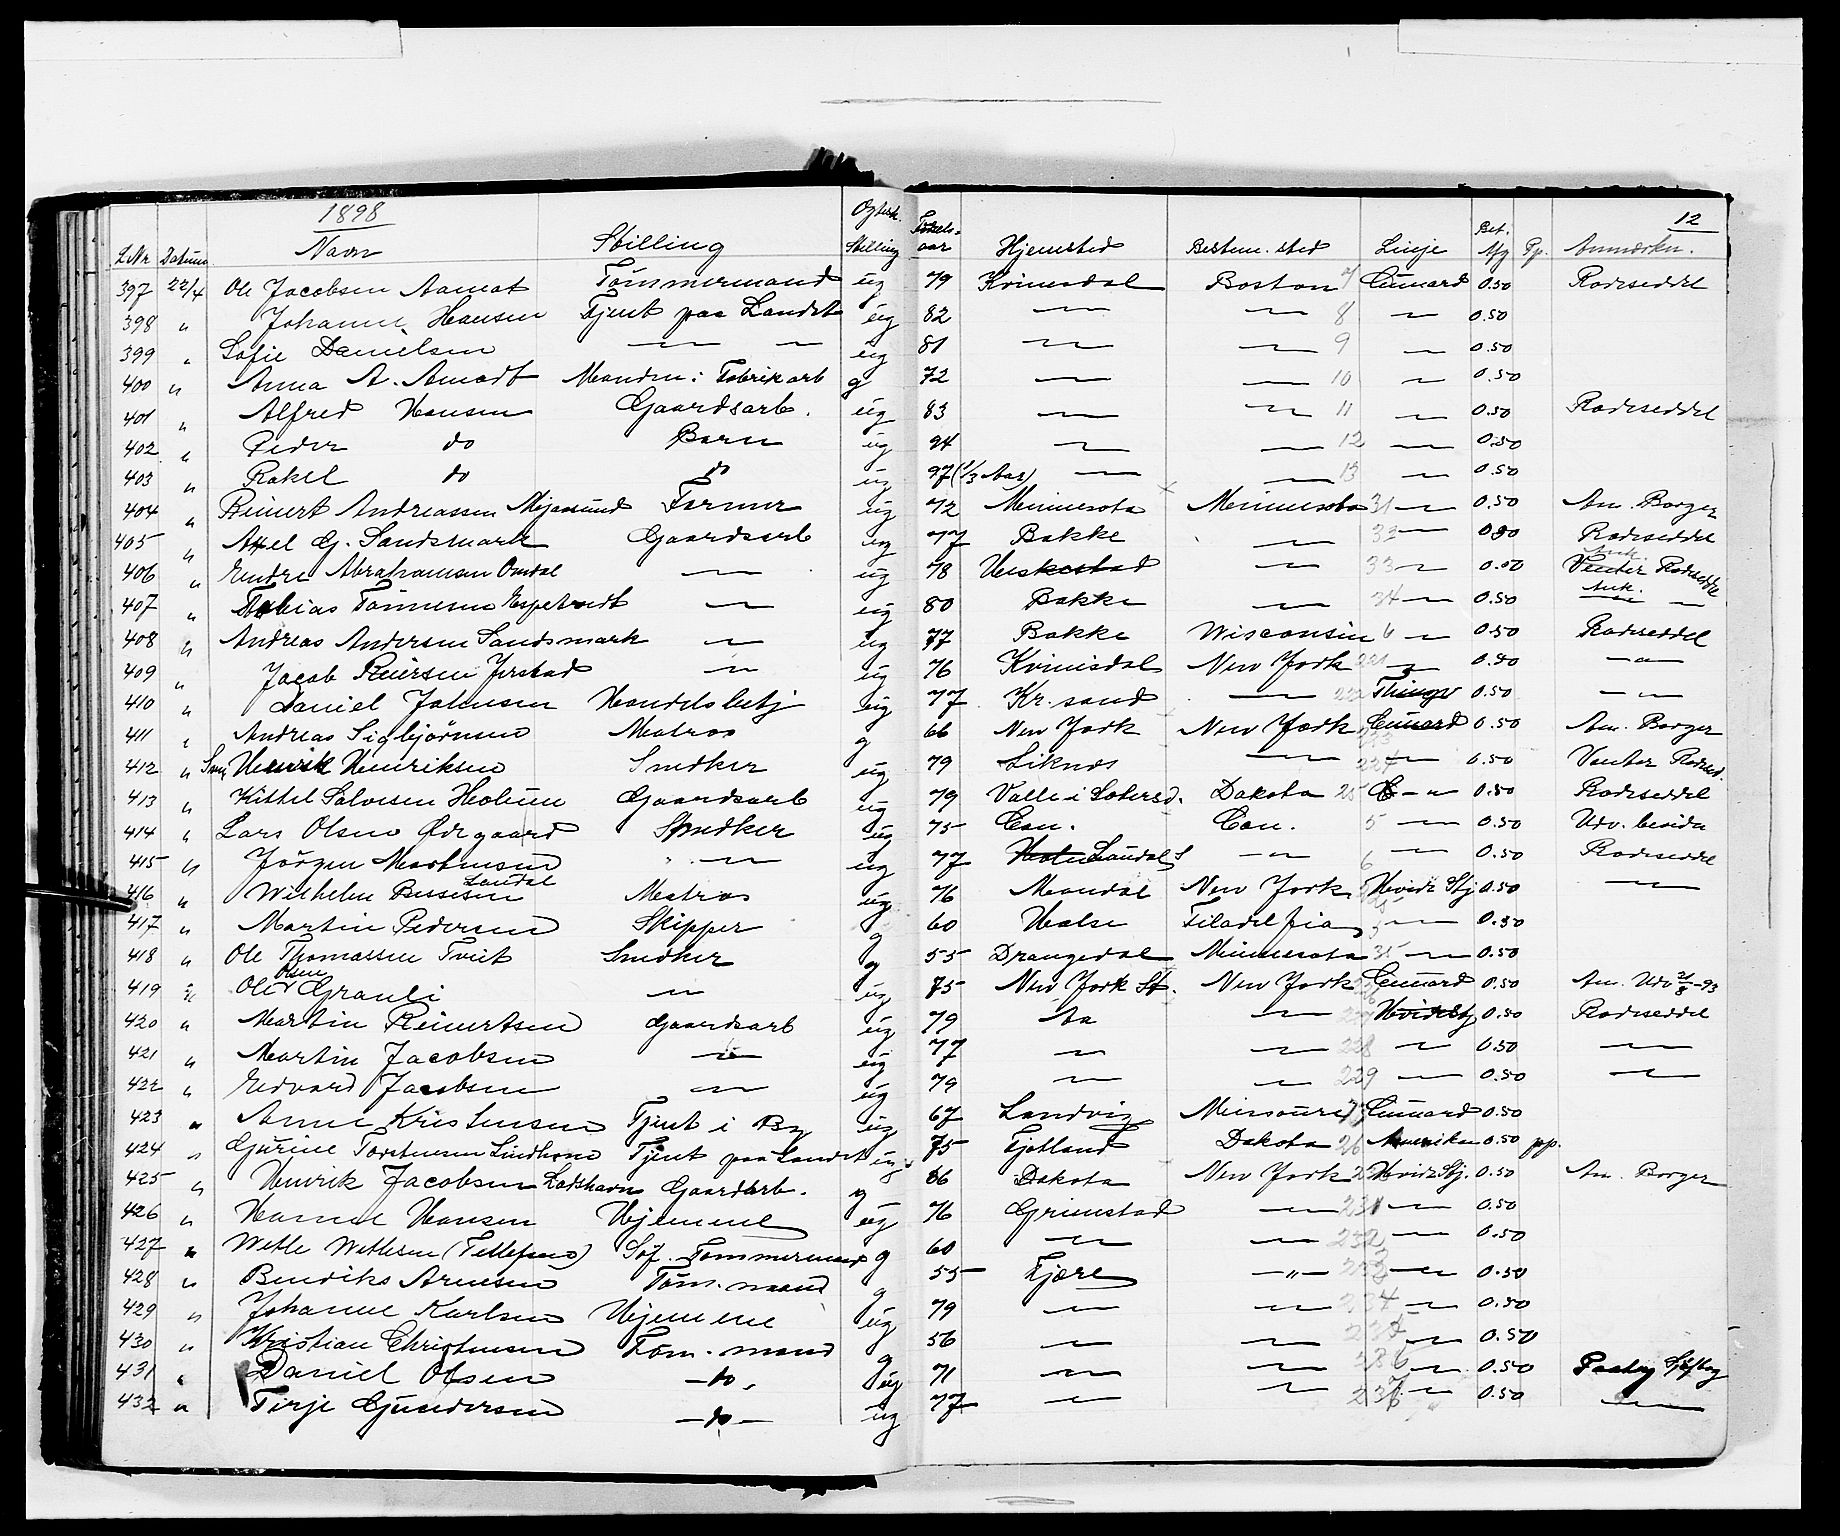 1898
12
L.Nr Datum Navn Stilling Ogtesk. Stilling Fødels-aar Hjemsted Bestem. sted Linje Bet. Afg Pp. Anmærkn.
397 22/4 Ole Jacobsen Aamot Tömmermand ug 79 Kvinesdal Boston 7 Cunard 0.50 Rodeseddel
398 " Johanne Hansen Tjent paa Landet ug 82 — — 8 — 0.50
399 " Sofie Danielsen — — ug 81 — — 9 — 0.50
400 " Anna A. Amodt Manden: Fabrikarb g 72 — — 10 — 0.50
401 " Alfred Hansen Gaardsarb. ug 83 — — 11 — 0.50 Rodeseddel
402 " Peder do Barn ug 94 — — 12 — 0.50
403 " Rakel do do ug 97 (1/3 Aar) — — 13 — 0.50
404 " Reinert Andreassen Farmer ug 72 Minnesota Minnesota 31 — 0.50 Am. Borger
405 " Axel G. Sandsmark Gaardsarb ug 77 Bakke — 32 — 0.50 Rodeseddel
406 " Endre Abrahamsen Omdal — ug 78 — 33 — 0.50 Venter Rodeseddel
407 " Tobias Tönnesen Espetvedt — ug 80 Bakke — 34 — 0.50 —
408 " Andreas Andersen Sandsmark — ug 77 Bakke Wisconsin 6 — 0.50 Rodeseddel
409 " Jacob Reiersen Jerstad — ug 76 Kvinisdal New York 221 — 0.50 —
410 " Daniel Johnsen Handelsbetj ug 77 Kr. sand — 222 Thingv 0.50 —
411 " Andreas Sigbjörnsen Matros g 66 New York New York 223 Cunard 0.50 Am. Borger
412 " Henrik Henriksen Snedker ug 79 Liknes — 224 — 0.50 Venter Rodesed.
413 " Kittel Salvesen Gaardsarb ug 79 Valle i Sætersd. Dakota 25 — 0.50 Rodeseddel
414 " Lars Olsen Ødegaard Snedker ug 75 Can. Can. 5 — 0.50 Udv. bevida
415 " Jörgen Mathisen — ug 77 Laudal — 6 — 0.50 Rodeseddel
416 " Wilhelm Bessesen Laudal Matros ug 76 Mandal New York Hvide Stj 0.50 —
417 " Martin Pedersen Skipper g 60 Halse Filadelfia — 0.50
418 " Ole Thomassen Tveit Snedker g 55 Drangedal Minnesota 35 — 0.50
419 " Ole Olsen Grauli — ug 75 New York St. New York Cunard 0.50 Am. Udv 21/8-93
420 " Martin Reinertsen Gaardsarb ug 79 Aa — 227 Hvidestj 0.50 Rodeseddel
421 " Martin Jacobsen — ug 77 — — 228 — 0.50 —
422 " Edvard Jacobsen — ug 79 — — 229 — 0.50 —
423 " Anne Kristensen Tjent i By ug 67 Landvig Missouri Cunard 0.50
424 " Gurine Torstensen Lindknud Tjent paa Landet ug 75 Fjotland Dakota 26 Amerika 0.50 pp.
425 " Henrik Jacobsen Ladshavn Gaardarb. g 66 Dakota New York Hvide Stj. 0.50 Am. Borger
426 " Hanne Hansen Hjemme ug 76 Grimstad — 231 — 0.50
427 " Wetle Wetlesen (Tellefsens) Söf. Tømmermand g 60 — — 232 — 0.50
428 " Bendiks Arnesen Töm. mand g 55 Fjære —"— 233 — 0.50
429 " Johanne Karlsen Hjemme ug 79 — — 234 — 0.50
430 " Kristian Christensen Töm. mand g 56 — — 235 — 0.50
431 " Daniel Olsen — do. ug 71 — — 236 — 0.50
432 " Terje Gundersen — do — ug 77 — — 237 — 0.50 —